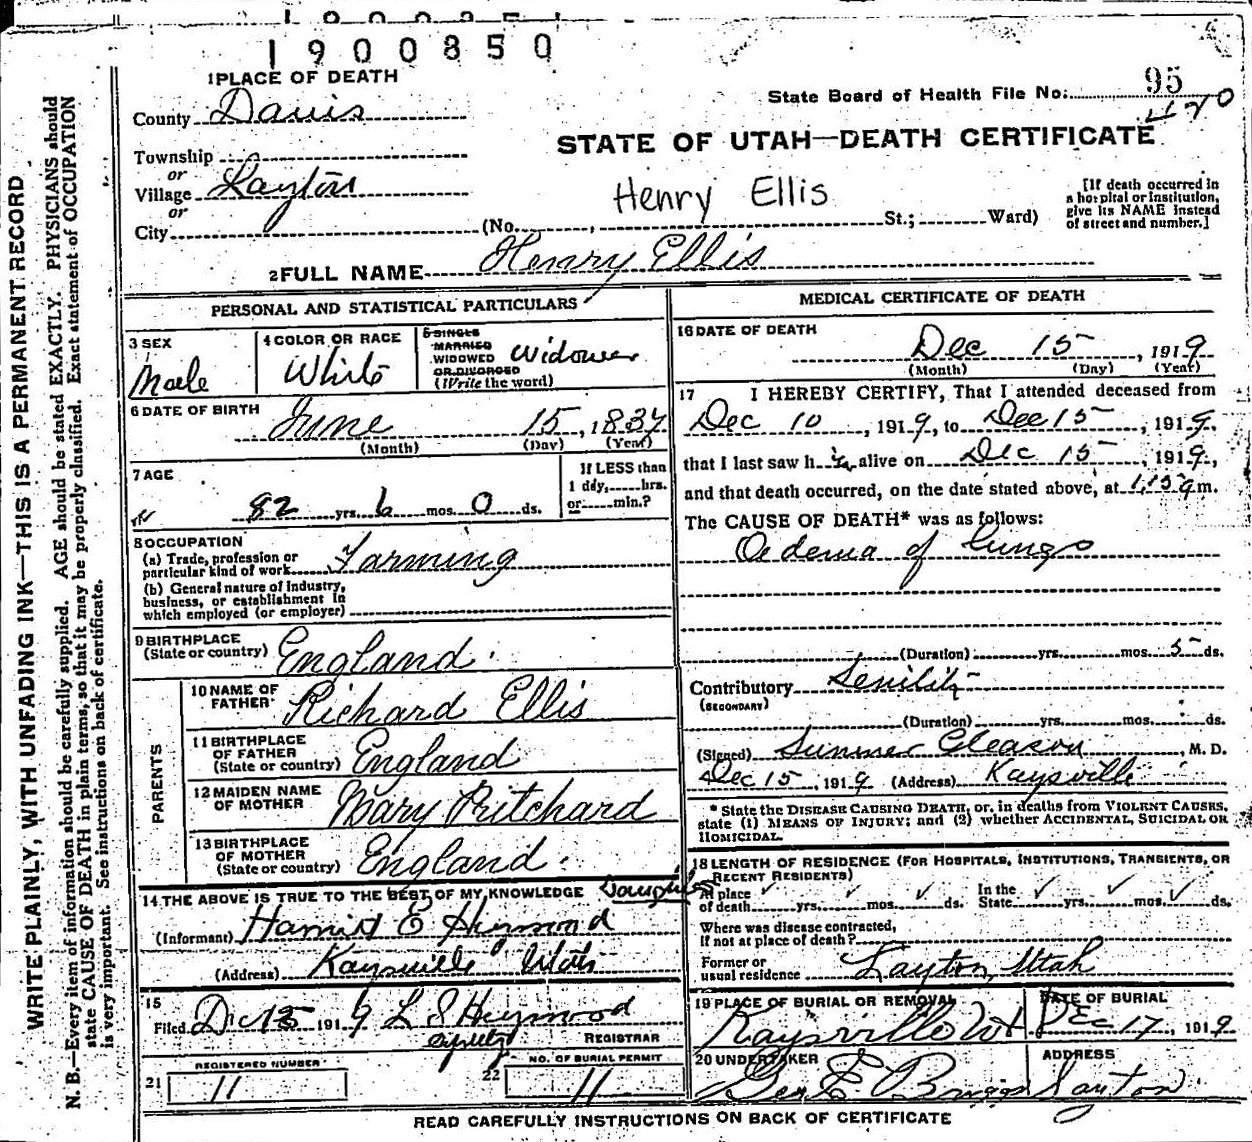 1900850
1 PLACE OF DEATH
County Davis
State Board of Health File No. 95
420
STATE OF UTAH—DEATH CERTIFICATE
Township
or
Village Layton
or
City
Henry Ellis
(No. , St.; Ward)
[If death occurred in a hospital or institution, give its NAME instead of street and number.]
2 FULL NAME Henry Ellis
PERSONAL AND STATISTICAL PARTICULARS
3 SEX
Male
4 COLOR OR RACE
White
5 SINGLE
MARRIED
WIDOWED
OR DIVORCED
(Write the word)
Widower
6 DATE OF BIRTH
June 15, 1837
(Month) (Day) (Year)
7 AGE
82 yrs. 6 mos. 0 ds.
If LESS than
1 day, hrs.
or min.?
8 OCCUPATION
(a) Trade, profession or
particular kind of work Farming
(b) General nature of industry,
business, or establishment in
which employed (or employer)
9 BIRTHPLACE
(State or country) England.
PARENTS
10 NAME OF
FATHER Richard Ellis
11 BIRTHPLACE
OF FATHER
(State or country) England
12 MAIDEN NAME
OF MOTHER Mary Pritchard
13 BIRTHPLACE
OF MOTHER
(State or country) England.
14 THE ABOVE IS TRUE TO THE BEST OF MY KNOWLEDGE Daughter
(Informant) Harriet E Heywood
(Address) Kaysville Utah
15
Filed Dec 15 1919 L S Heywood
Deputy REGISTRAR
REGISTERED NUMBER
21 11
NO. OF BURIAL PERMIT
22 11
MEDICAL CERTIFICATE OF DEATH
16 DATE OF DEATH
Dec 15, 1919
(Month) (Day) (Year)
17 I HEREBY CERTIFY, That I attended deceased from
Dec 10, 1919, to Dec 15, 1919,
that I last saw h im alive on Dec 15, 1919,
and that death occurred, on the date stated above, at 1.15 a m.
The CAUSE OF DEATH* was as follows:
Oedema of lungs
(Duration) yrs. mos. 5 ds.
Contributory Senility
(SECONDARY)
(Duration) yrs. mos. ds.
(Signed) Sumner Gleason, M. D.
Dec 15, 1919 (Address) Kaysville
* State the DISEASE CAUSING DEATH, or, in deaths from VIOLENT CAUSES,
state (1) MEANS OF INJURY; and (2) whether ACCIDENTAL, SUICIDAL OR
HOMICIDAL.
18 LENGTH OF RESIDENCE (FOR HOSPITALS, INSTITUTIONS, TRANSIENTS, OR
RECENT RESIDENTS)
At place
of death yrs. mos. ds.
In the
State yrs. mos. ds.
Where was disease contracted,
if not at place of death?
Former or
usual residence Layton, Utah
19 PLACE OF BURIAL OR REMOVAL
Kaysville Ut
DATE OF BURIAL
Dec 17, 1919
20 UNDERTAKER
Geo. E Briggs
ADDRESS
Layton
READ CAREFULLY INSTRUCTIONS ON BACK OF CERTIFICATE
WRITE PLAINLY, WITH UNFADING INK—THIS IS A PERMANENT RECORD
N. B.—Every item of information should be carefully supplied. AGE should be stated EXACTLY. PHYSICIANS should
state CAUSE OF DEATH in plain terms, so that it may be properly classified. Exact statement of OCCUPATION
is very important. See instructions on back of certificate.